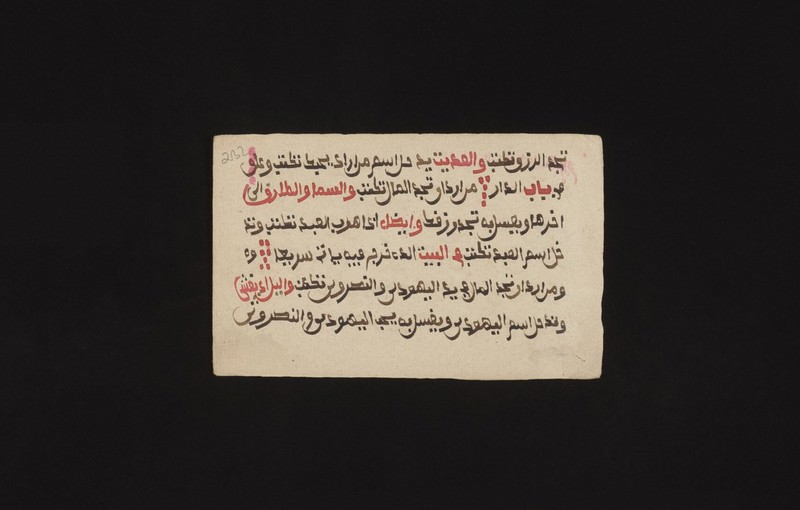 تجد الرزق تكتب والعديت يدخل اسم من اراد يحبك تكتب وعلق
في باب الدار من اراد ان تجد المال تكتب والسما والطارق الى
اخرها ويغسل به تجد رزقا وايضا اذا هرب العبد تكتب وتد
خل اسم العبد تكتب في البيت الذى خرج فيه ياتى سريعا
ومن اراد ان تجد المال في يد اليهودين والنصرون تكتب واليل اذا يغشى
وتدخل اسم اليهودين ويغسل به يحب اليهودين والنصرون